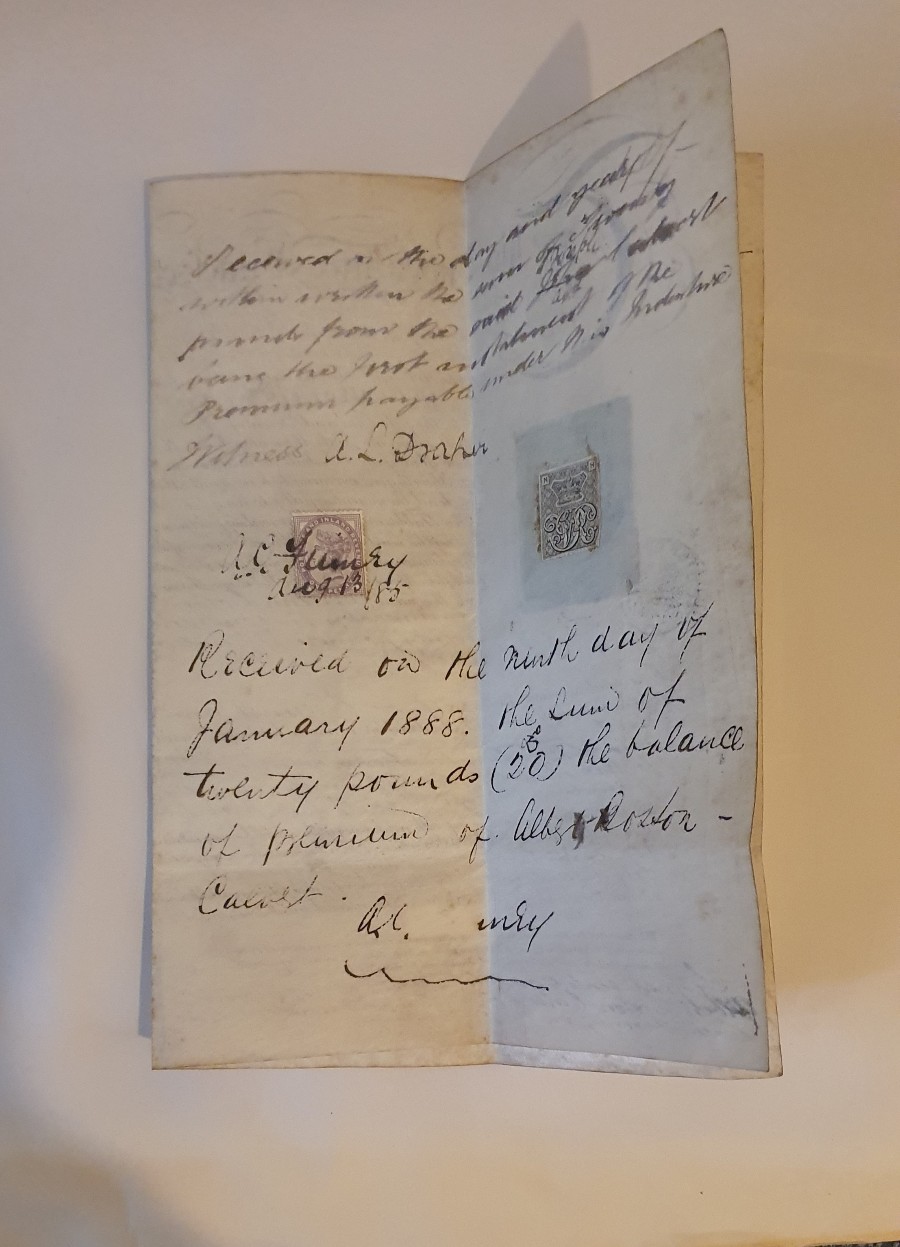 Received on the day and year
within written the sum of Twenty
pounds from the said
being the first instalment of the
Premium payable under this Indenture
Witness A. L. Draper
INLAND REVENUE
VR
Aug 13/85
Received on the Ninth day of
January 1888. the Sum of
twenty pounds (20) the balance
of premium of Albert
Calvert.